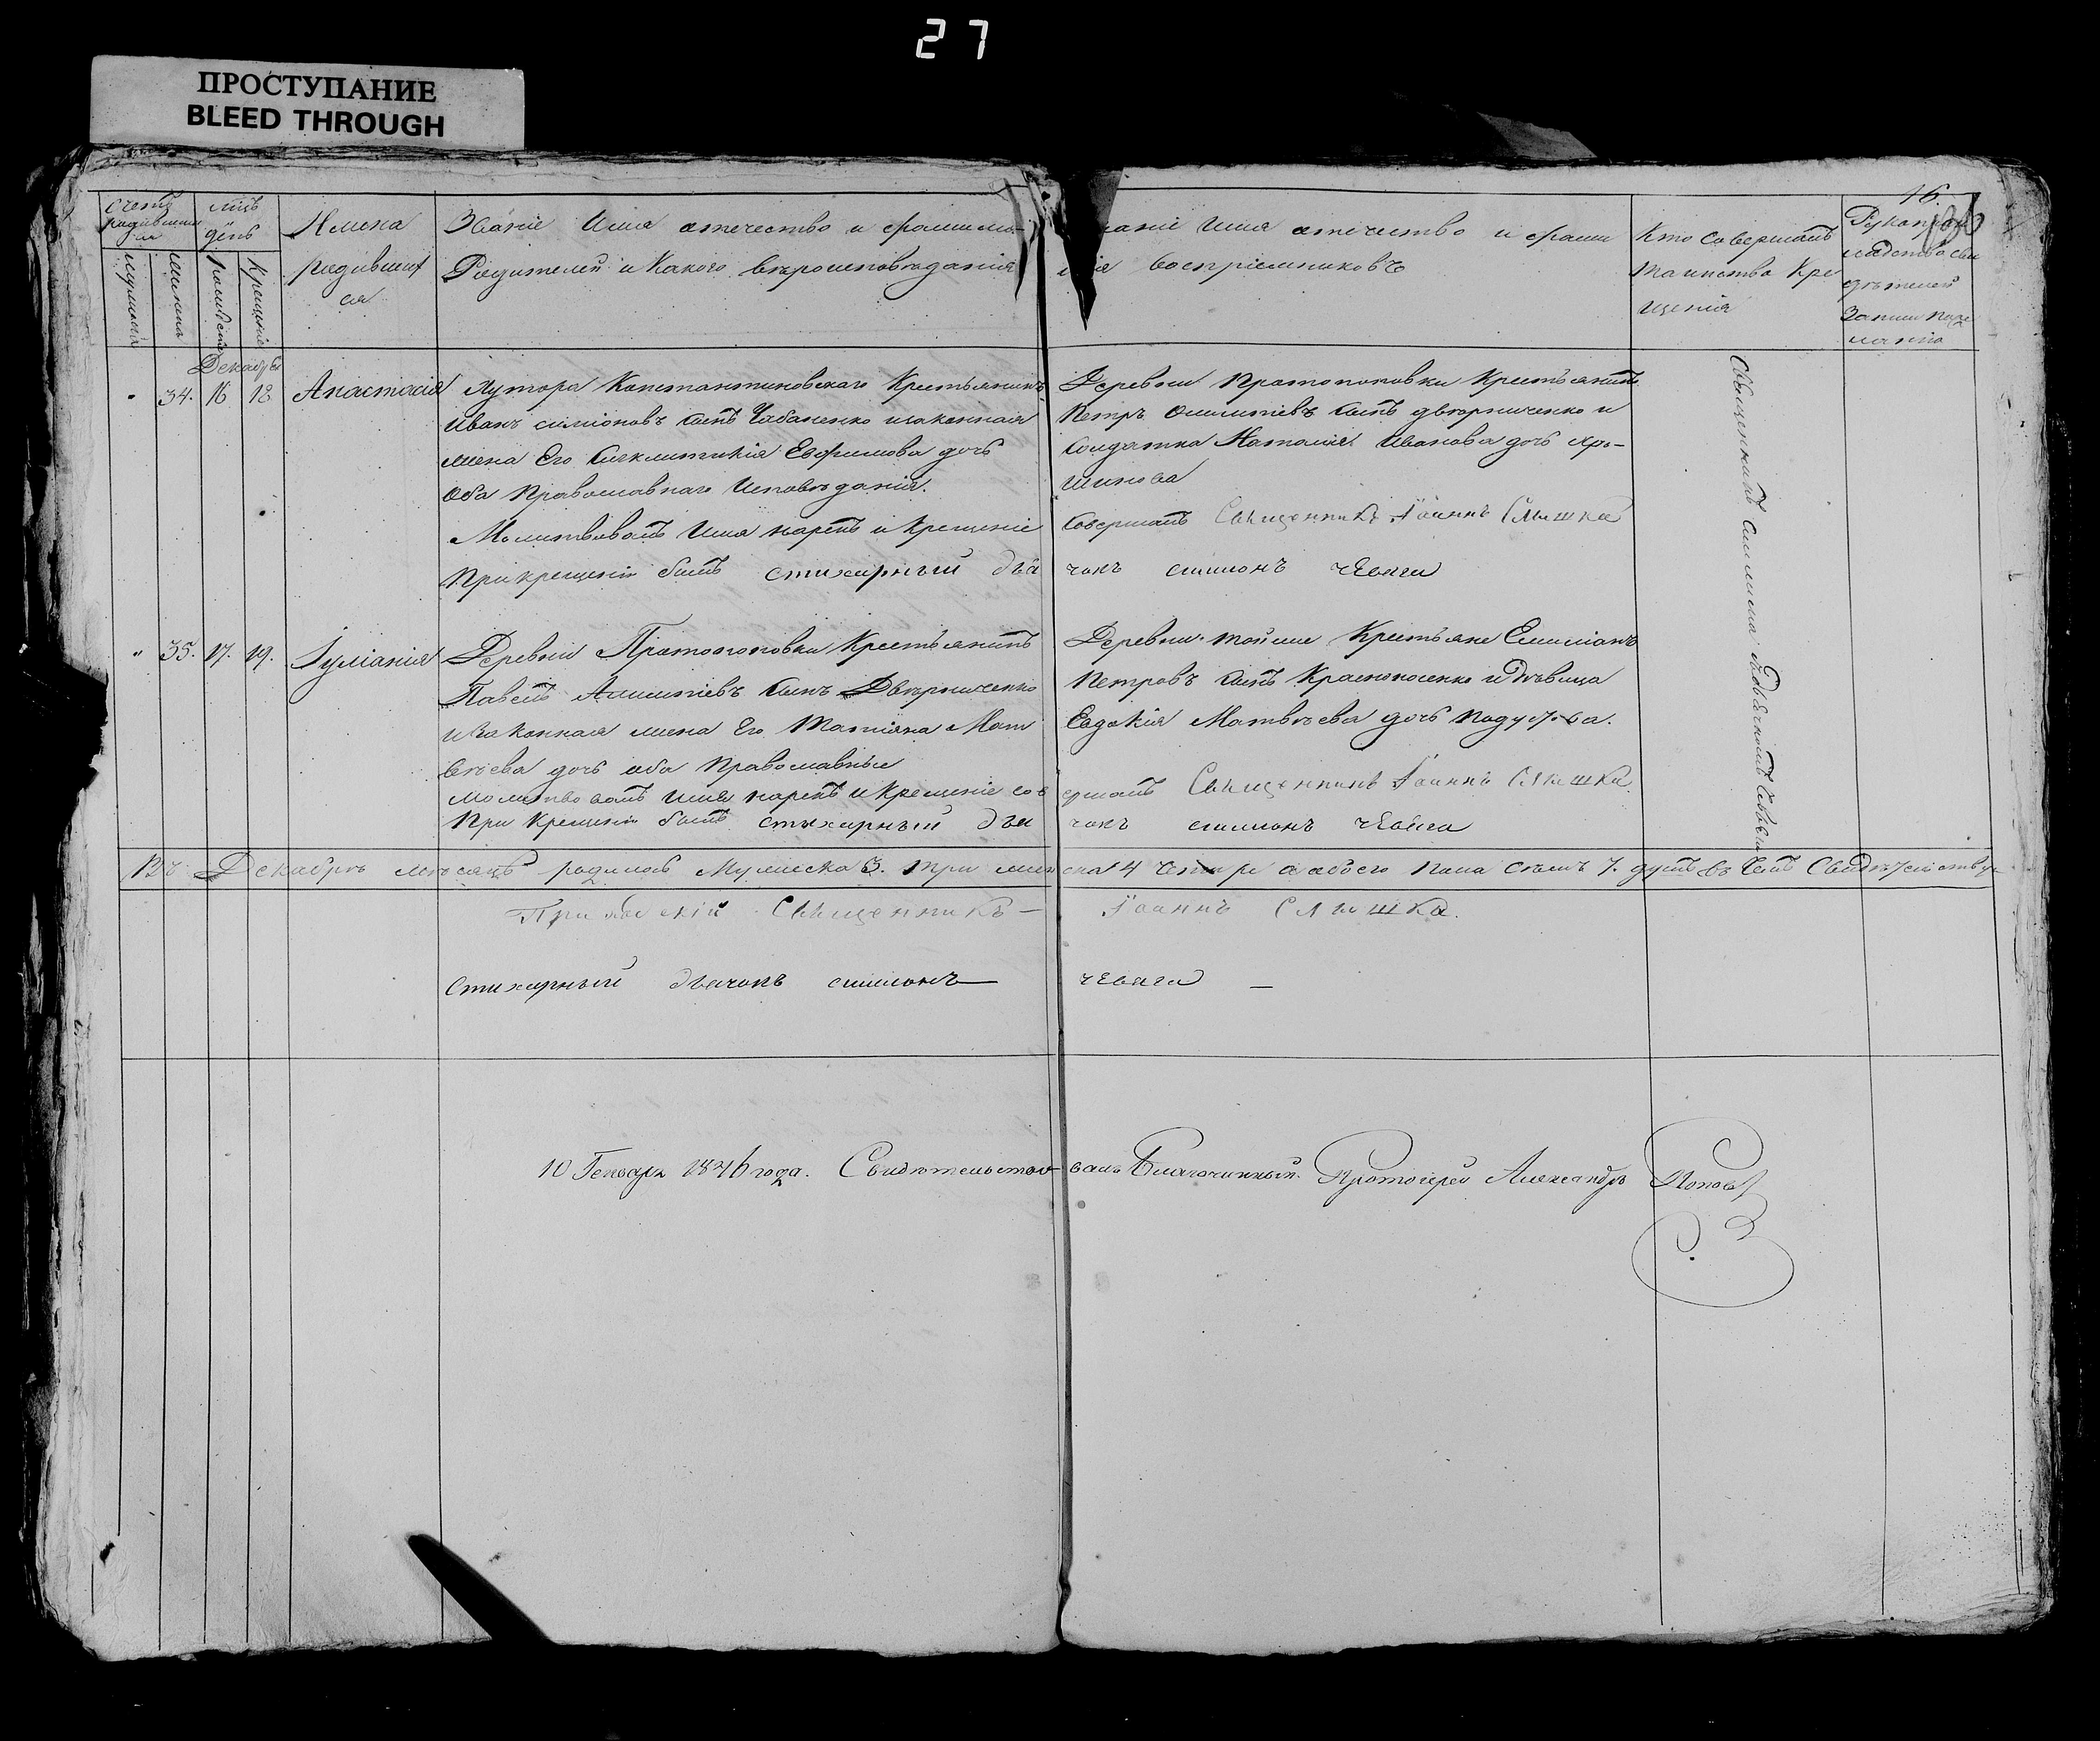 27
ПРОСТУПАНИЕ
BLEED THROUGH
16.
Счетъ родившихся
мцъ день
Имена родившихся
Званіе Имя отечество и фамилія
Родителей и Какого вѣроисповѣданія
Имя отечество и фами
лія воспріемниковъ
Кто Совершалъ
таинство Кре
щенія
Рукопри
дѣтелей
Записи
Мужеска
Женска
Рожденія
Крещенія
Декабрь
34. 16 18 Анастасія
Хутора Константиновскаго Крестьянинъ
Иванъ симіоновъ сынъ Чабаненко и законная
жена Его Сигклитикія Евфимова дочь
Оба Православнаго Исповѣданія.
Молитвовалъ Имя нарекъ и Крещеніе
При крещеніи былъ стихарный дья
Деревни Протопоповки Крестьянинъ
Петръ сынъ дверниченко и
Солдатка Наталія Иванова дочь
Совершалъ Священникъ Іоаннъ Слюшка
чокъ симионъ
35. 17. 19. Іуліанія
Деревни Протопоповки Крестьянинъ
Павелъ сынъ Дверниченко
и законная жена Его Татіяна Мат
вѣева дочь оба Православные
Молитвовалъ имя нарекъ и Крещеніе сов
При Крещеніи былъ стихарный дья
Деревни тойже Крестьяне Емиліанъ
Петровъ сынъ Красноносенко и Дѣвица
Евдокія Матвѣева дочь
ершалъ Священникъ Іоаннъ Слюшка.
чокъ симионъ
Священникъ
Въ Декабрѣ мѣсяцѣ родилось Мужеска 3. три женска 4 четыре а обоего пола семъ 7. душъ въ Чемъ Свидѣтельству
Приходскій Священникъ — Іоаннъ Слюшка.
стихарный дьячокъ симионъ —
10 Генваря 1846 года. Свидѣтельствовалъ Благочинный Протоіерей Александръ Поповъ